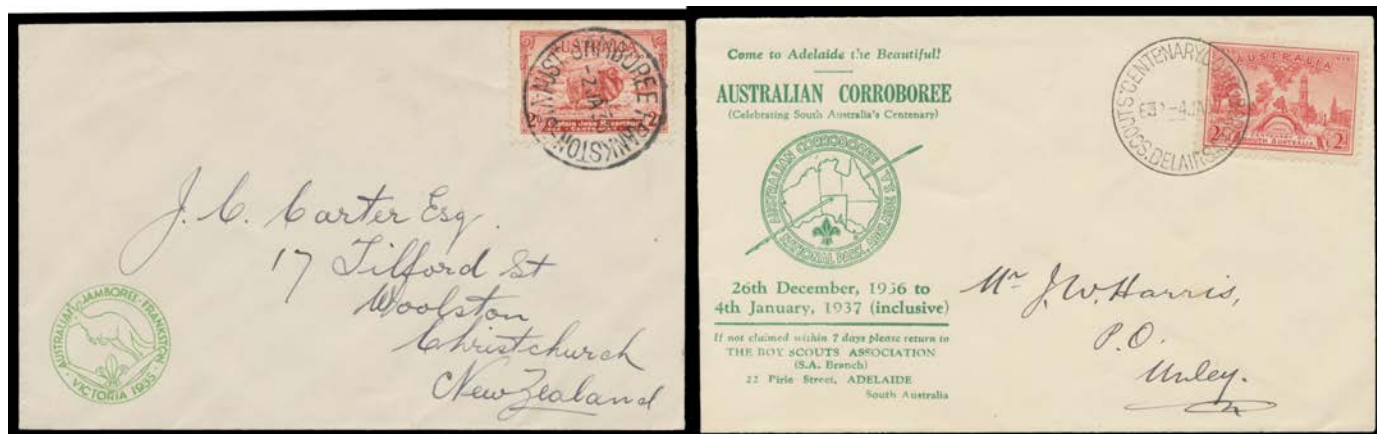 AUSTRALIA
2
2
AUST. JAMBOREE FRANKSTON
-2JA35
J. C. Carter Esq.
17 Tilford St
Woolston
Christchurch
New Zealand
AUSTRALIAN JAMBOREE · FRANKSTON ·
VICTORIA 1935
Come to Adelaide the Beautiful!
AUSTRALIAN CORROBOREE
(Celebrating South Australia's Centenary)
AUSTRALIAN CORROBOREE
NATIONAL PARK, ADELAIDE S.A.
26th December, 1936 to
4th January, 1937 (inclusive)
If not claimed within 7 days please return to
THE BOY SCOUTS ASSOCIATION
(S.A. Branch)
22 Pirie Street, ADELAIDE
South Australia
SCOUTS' CENTENARY
-4JA
AUSTRALIA
2D
2D
SOUTH AUSTRALIA
Mr J. W. Harris,
P.O.
Unley.